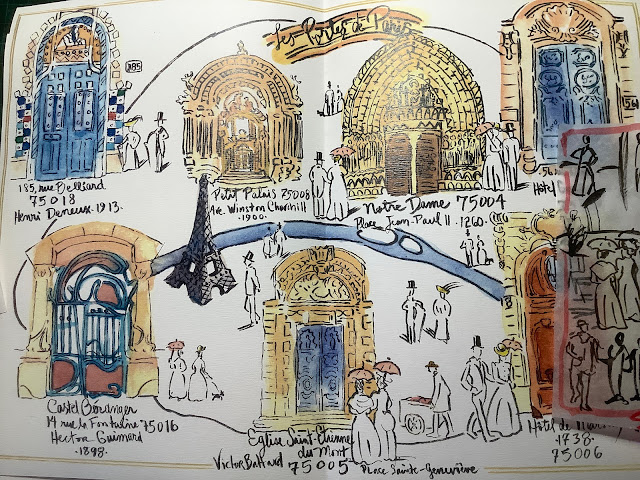 Les Portes de Paris
185
185, rue Belliard
75018
Henri Deneux. 1913.
Petit Palais 75008
Ave. Winston Churchill
. 1900.
Notre Dame 75004
Place Jean-Paul II . 1260.
56
Hôtel
Castel Béranger
14 rue la Fontaine 75016
Hector Guimard
. 1898.
Eglise Saint-Etienne
du Mont
Victor Baltard 75005 Place Sainte-Geneviève
Hôtel de
1738.
75006